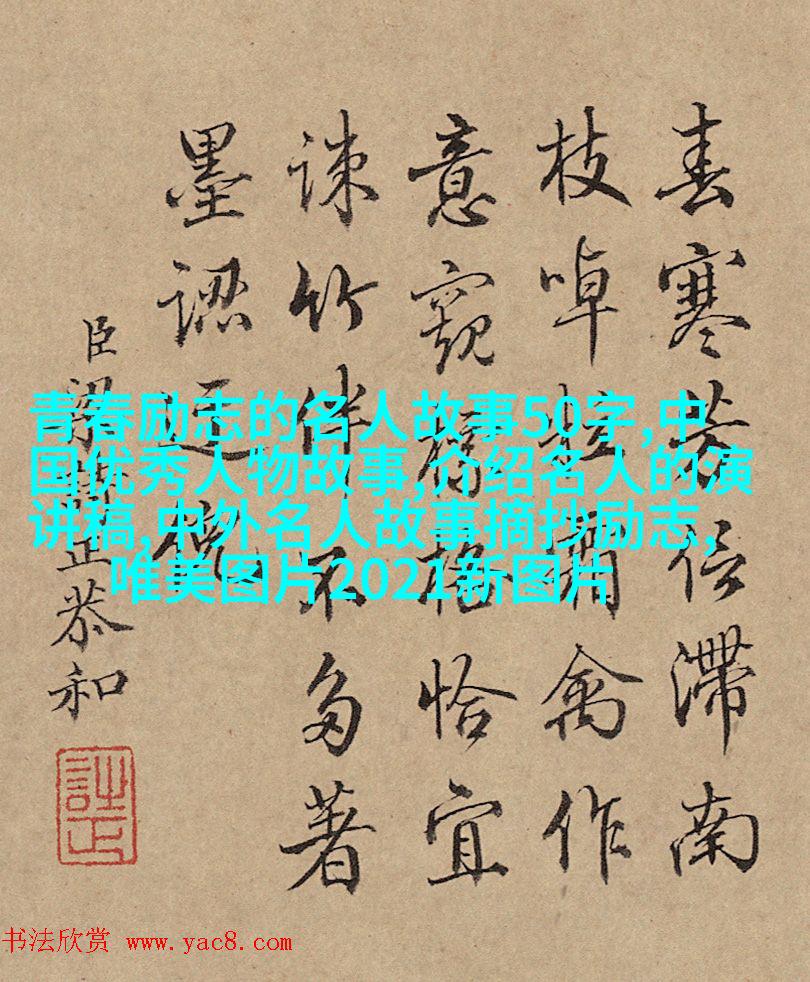 春寒芳信滞南
枝啅粒霜禽作
意窺臞格恰宜
疎竹伴不多著
墨認
臣梁詩正恭和
詩正
青春励志的名人故事50字,中
国优秀人物故事,介绍名人的演
讲稿,中外名人故事摘抄励志,
唯美图片2021新图片
书法欣赏 www.yac8.com